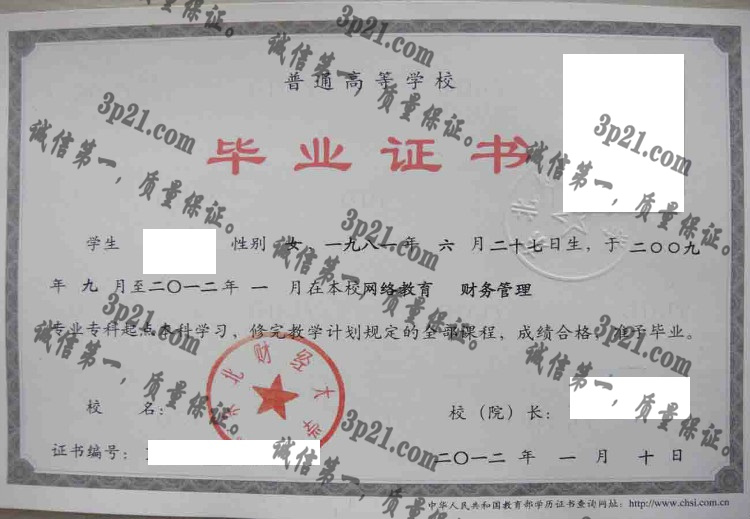 普通高等学校
毕业证书
学生 性别 女，一九八一年 六 月二十七日生，于二〇〇九
年 九 月至二〇一二年 一 月在本校网络教育 财务管理
专业专科起点本科学习，修完教学计划规定的全部课程，成绩合格，准予毕业。
东北财经大学
校 名：
校（院）长：
证书编号：
二〇一二 年 一 月 十 日
中华人民共和国教育部学历证书查询网址：http://www.chsi.com.cn
3p21.com
诚信第一，质量保证。
3p21.com
诚信第一，质量保证。
3p21.com
诚信第一，质量保证。
3p21.com
诚信第一，质量保证。
3p21.com
诚信第一，质量保证。
3p21.com
诚信第一，质量保证。
3p21.com
诚信第一，质量保证。